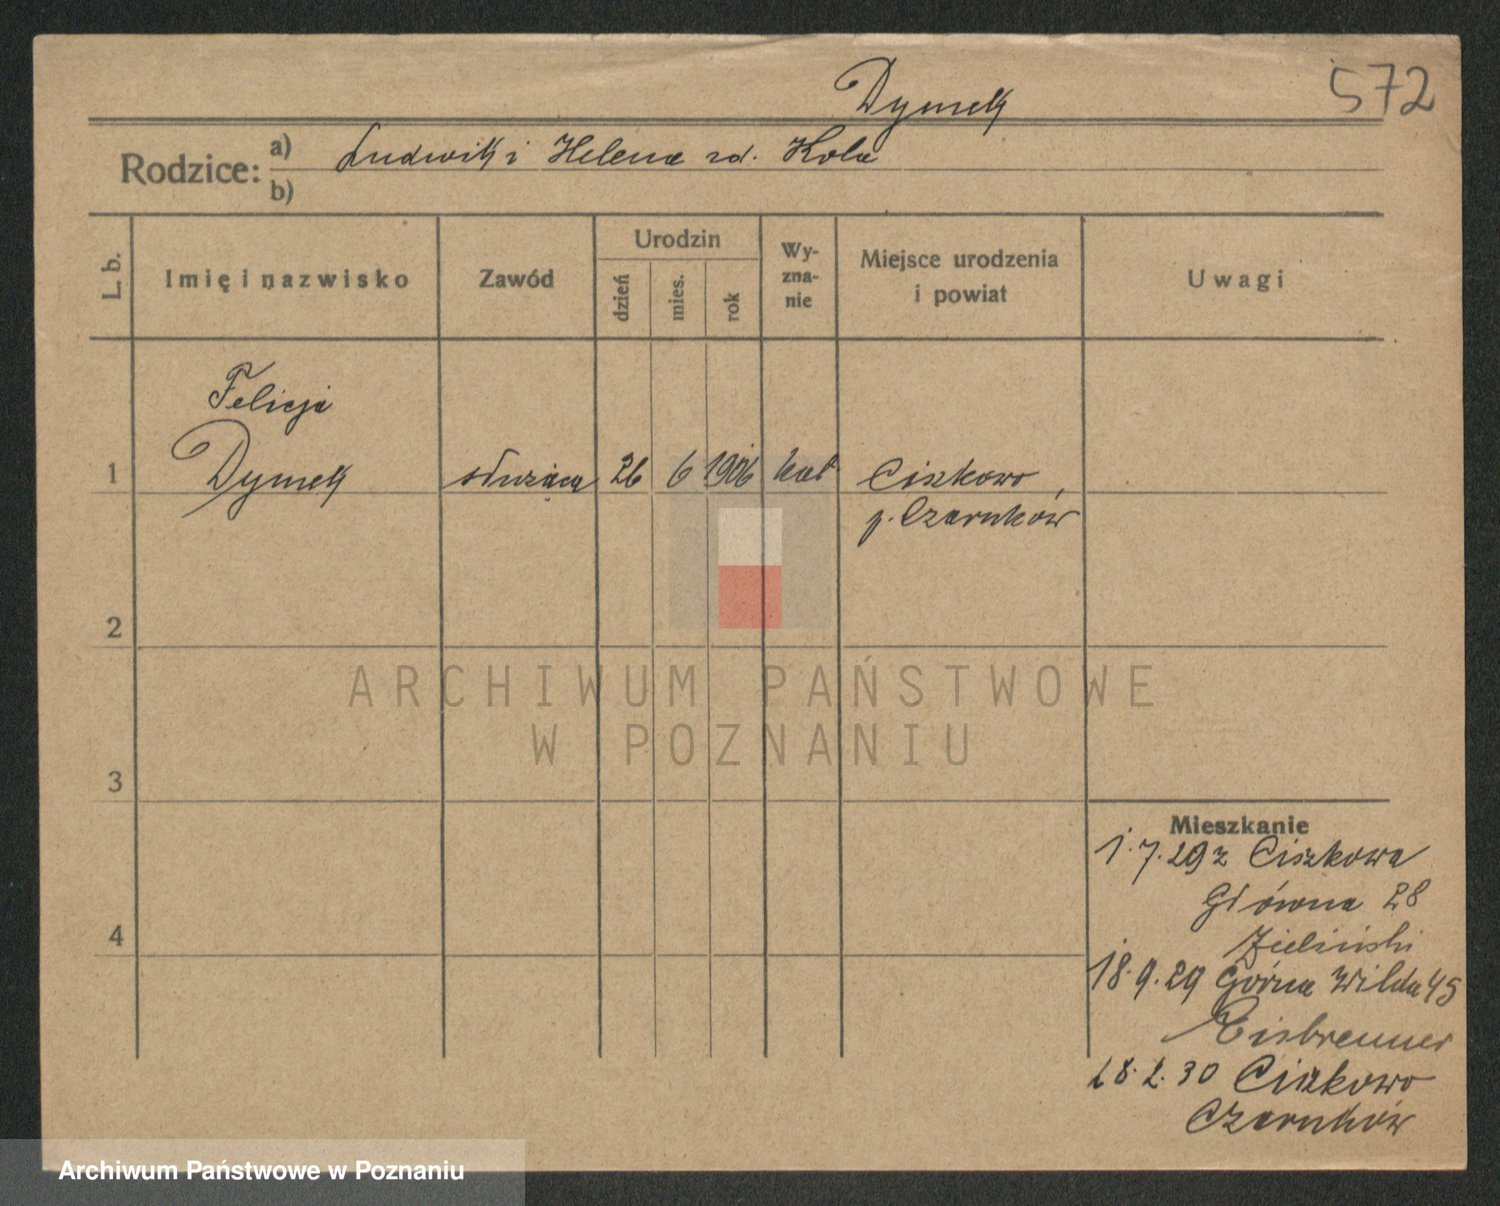 Dymek
572
Rodzice: a) Ludwik i Helena zd. Kola
b)
L. b.
Imię i nazwisko
Zawód
Urodzin
dzień
mies.
rok
Wy-
zna-
nie
Miejsce urodzenia
i powiat
Uwagi
Felicja
1 Dymek służąca 26 6 1906 kat Ciszkowo,
p. Czarnków
2
ARCHIWUM PAŃSTWOWE
W POZNANIU
3
Mieszkanie
1.7.29 z Ciszkowa
Główna 28
4
Zieliński
18.9.29 Górna Wilda 45
Eisbrenner
28.2.30 Ciszkowo
Czarnków
Archiwum Państwowe w Poznaniu